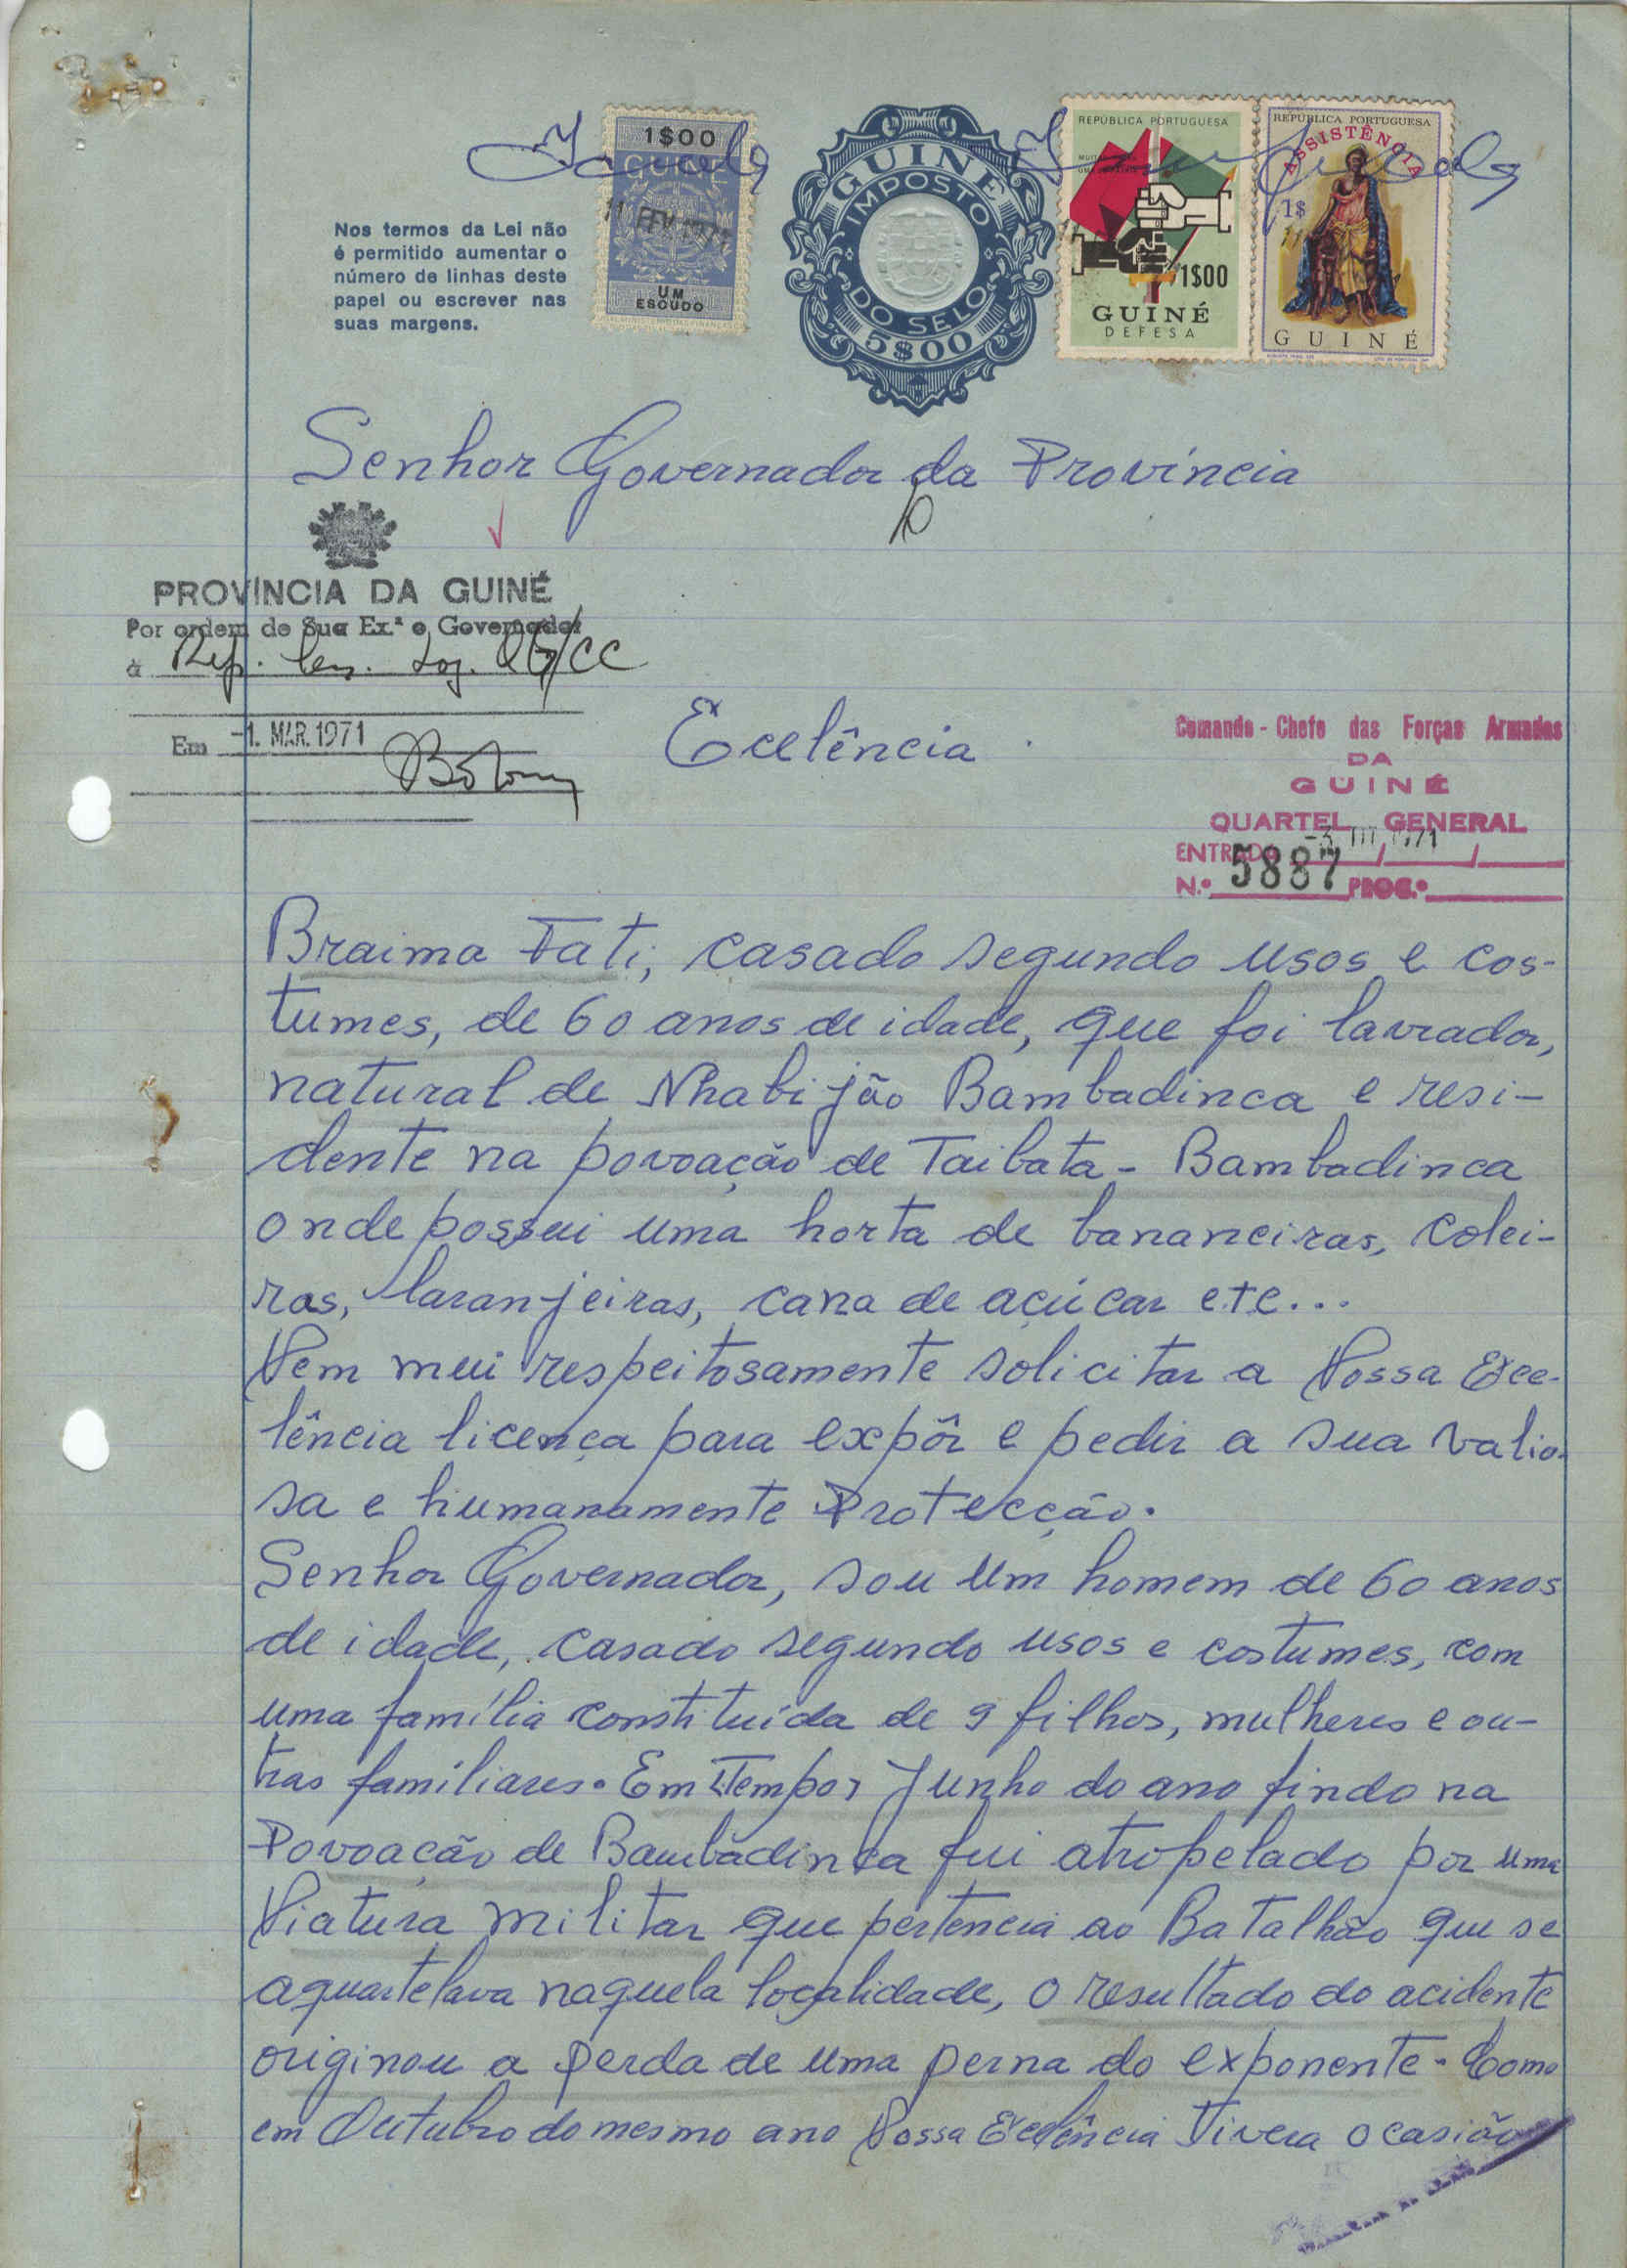 1$00
GUINÉ
11 FEV 1971
UM
ESCUDO
GUINÉ
IMPOSTO
DO SELO
5$00
REPÚBLICA PORTUGUESA
1$00
GUINÉ
DEFESA
REPÚBLICA PORTUGUESA
ASSISTÊNCIA
1$
GUINÉ
Nos termos da Lei não
é permitido aumentar o
número de linhas deste
papel ou escrever nas
suas margens.
Senhor Governador da Província
PROVÍNCIA DA GUINÉ
Por ordem de Sua Ex.ª o Governador
à Rep. QG/CC
Em -1. MAR. 1971
Excelência
Comando-Chefe das Forças Armadas
DA
GUINÉ
QUARTEL GENERAL
ENTRADA -3 III 1971
N.º 5887 PROC.º
Braima Fati, casado segundo usos e cos-
tumes, de 60 anos de idade, que foi lavrador,
natural de Nhabijão Bambadinca e resi-
dente na povoação de Taibata - Bambadinca
onde possui uma horta de bananeiras, colei-
ras, laranjeiras, cana de açúcar etc...
Vem mui respeitosamente solicitar a Vossa Exce-
lência licença para expôr e pedir a sua valio-
sa e humanamente Protecção.
Senhor Governador, sou um homem de 60 anos
de idade, casado segundo usos e costumes, com
uma família constituída de 9 filhos, mulheres e ou-
tras famíliares. Em Tempos Junho do ano findo na
Povoação de Bambadinca fui atropelado por uma
Viatura militar que pertencia ao Batalhão que se
aquartelava naquela localidade, o resultado do acidente
originou a perda de uma perna do exponente. Como
em Outubro do mesmo ano Vossa Excelência Tivera ocasião